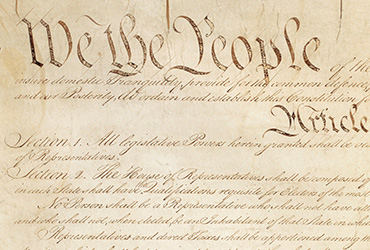 We the People of the
insure domestic Tranquility, provide for the common defence,
and our Posterity, do ordain and establish this Constitution for
Article
Section. 1. All legislative Powers herein granted shall be
of Representatives.
Section. 2. The House of Representatives shall be composed of
in each State shall have the Qualifications requisite for Electors of the most
No Person shall be a Representative who shall not have
and who shall not, when elected, be an Inhabitant of that State in
Representatives and direct Taxes shall be apportioned among the